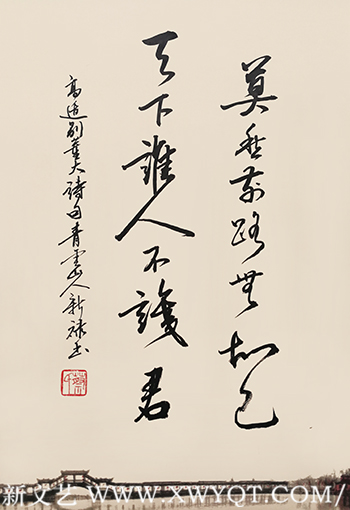 莫愁前路無知己
天下誰人不識君
高適別董大詩句青雲山人新禄书
新文艺 WWW.XWYQT.COM/